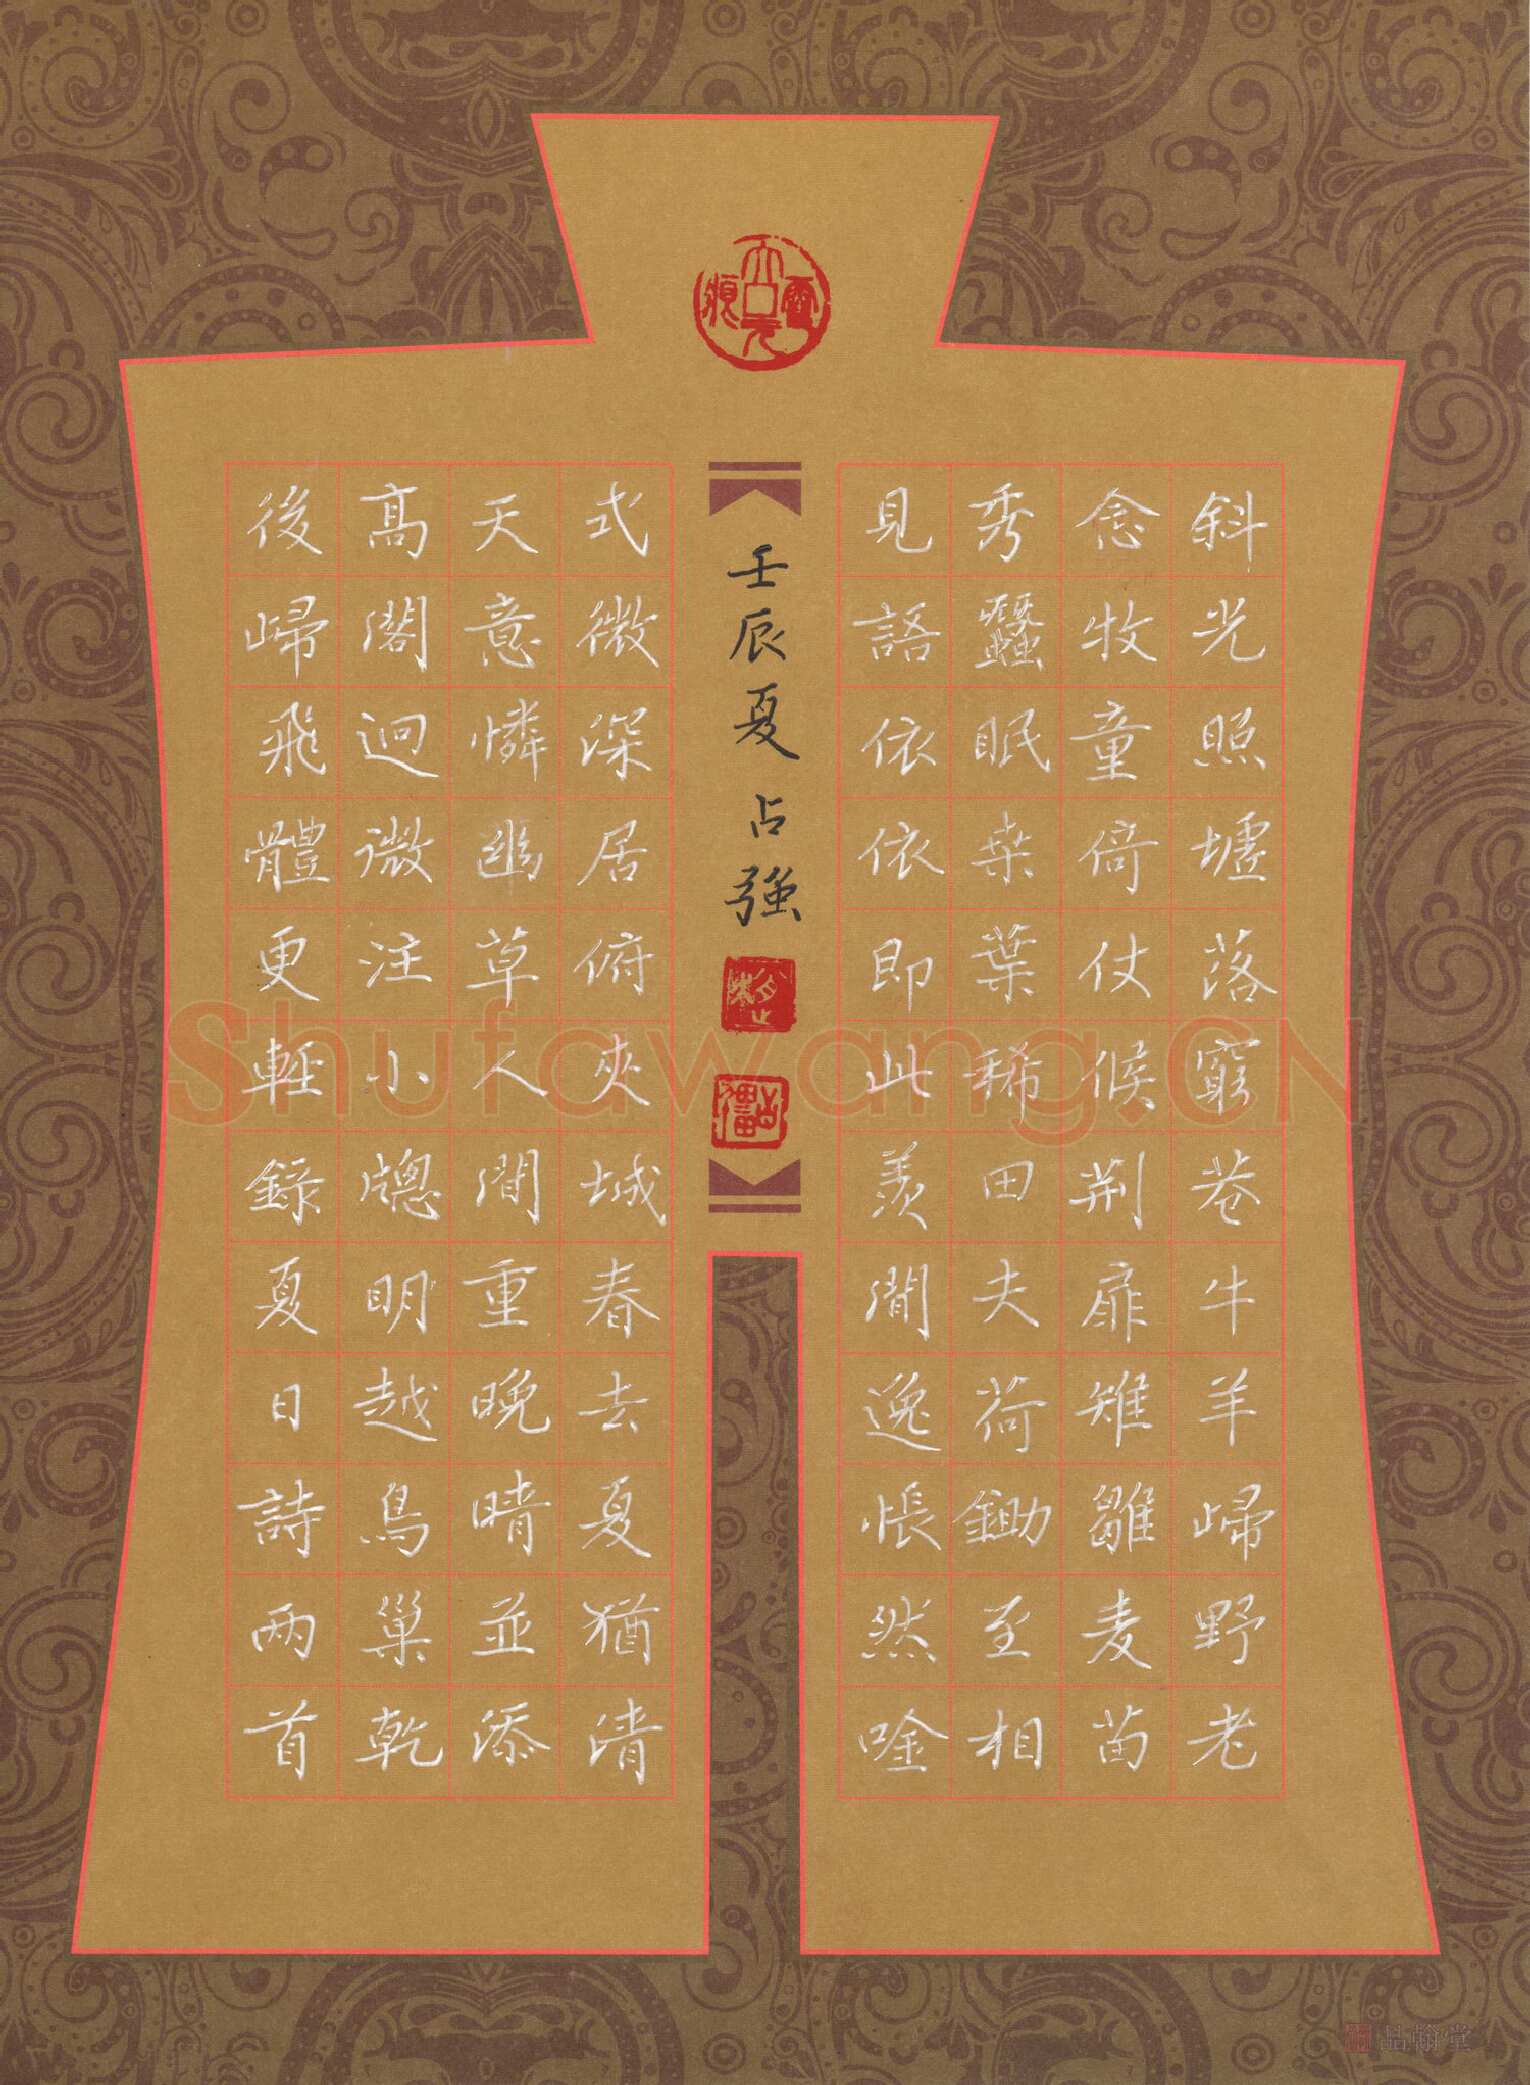 斜光照墟落窮巷牛羊歸野老
念牧童倚仗候荊扉雉雛麦苗
秀蠶眠桒葉稀田夫荷鋤至相
見語依依即此羨閒逸悵然唫
式微深居俯夾城春去夏猶清
天意憐幽草人間重晚晴並添
髙閣迥微注小牕明越鳥巢乾
後歸飛體更輕錄夏日詩两首
壬辰夏占強
Shufawang.CN
品翰堂